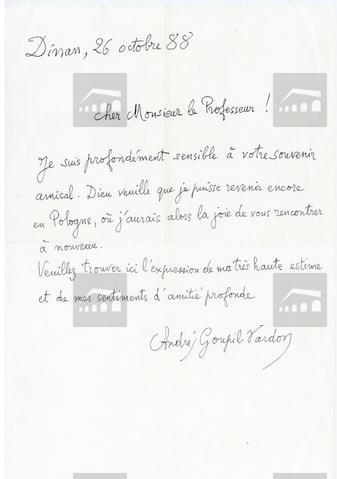 Dinan, 26 octobre 88
cher Monsieur le Professeur !
Je suis profondément sensible à votre souvenir
amical. Dieu veuille que je puisse revenir encore
en Pologne, où j'aurais alors la joie de vous rencontrer
à nouveau.
Veuillez trouver ici l'expression de ma très haute estime
et de mes sentiments d'amitié profonde
André Goupil-Vardon